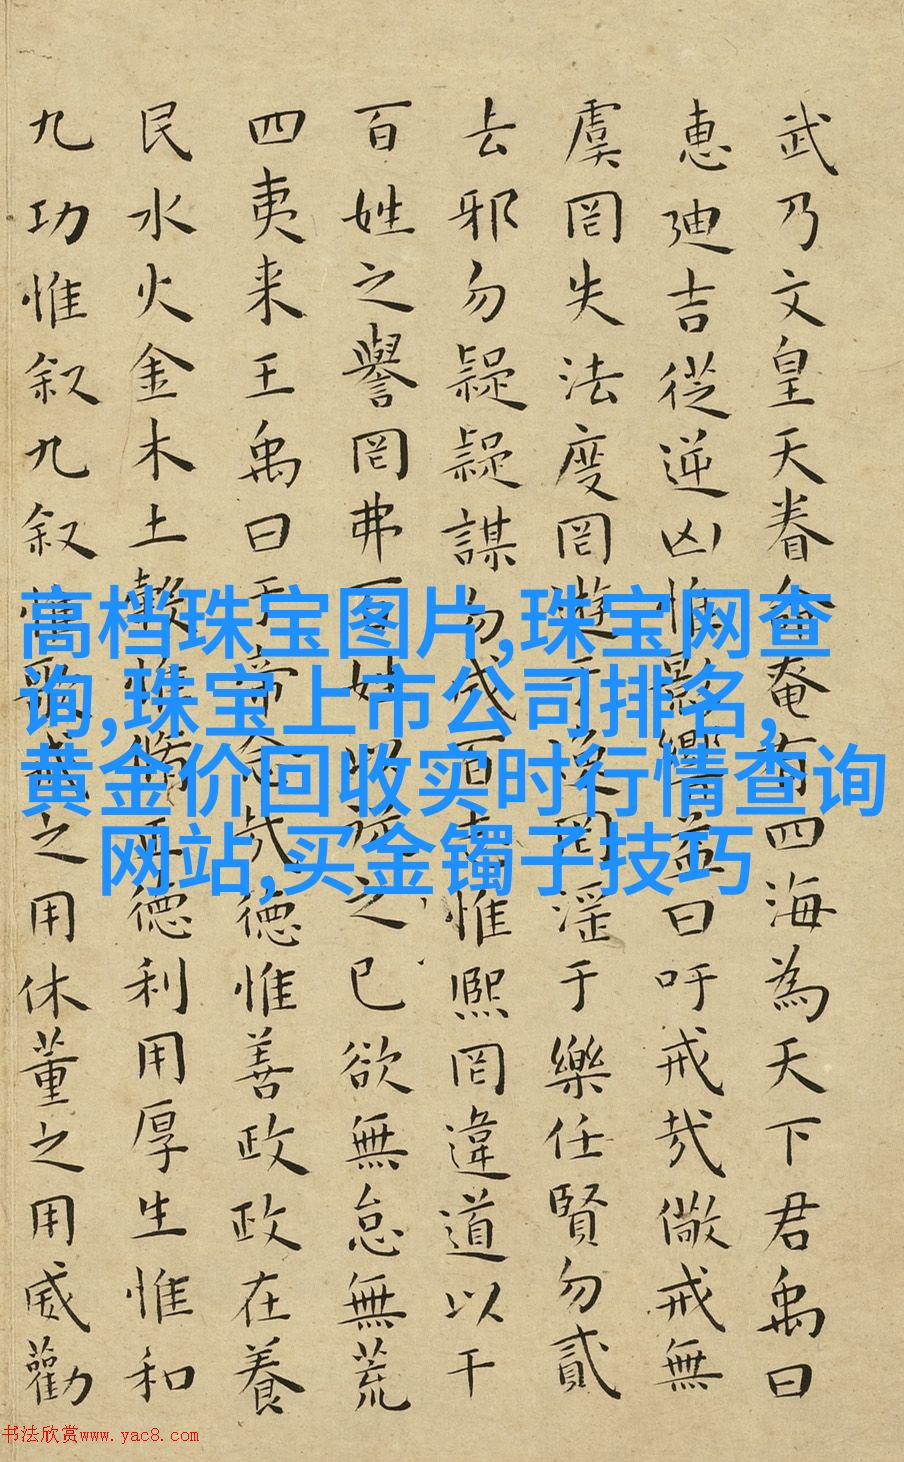 武乃文皇天眷命奄有四海為天下君禹曰
惠迪吉從逆凶惟影響益曰吁戒哉儆戒無
虞罔失法度罔遊于逸罔淫于樂任賢勿貳
去邪勿疑疑謀勿成百志惟熙罔違道以干
百姓之譽罔弗百姓以從之已欲無怠無荒
四夷来王禹曰于帝念哉德惟善政政在養
民水火金木土穀惟脩正德利用厚生惟和
九功惟叙九叙惟歌戒之用休董之用威勸
高档珠宝图片,珠宝网查
询,珠宝上市公司排名,
黄金价回收实时行情查询
网站,买金镯子技巧
书法欣赏www.yac8.com